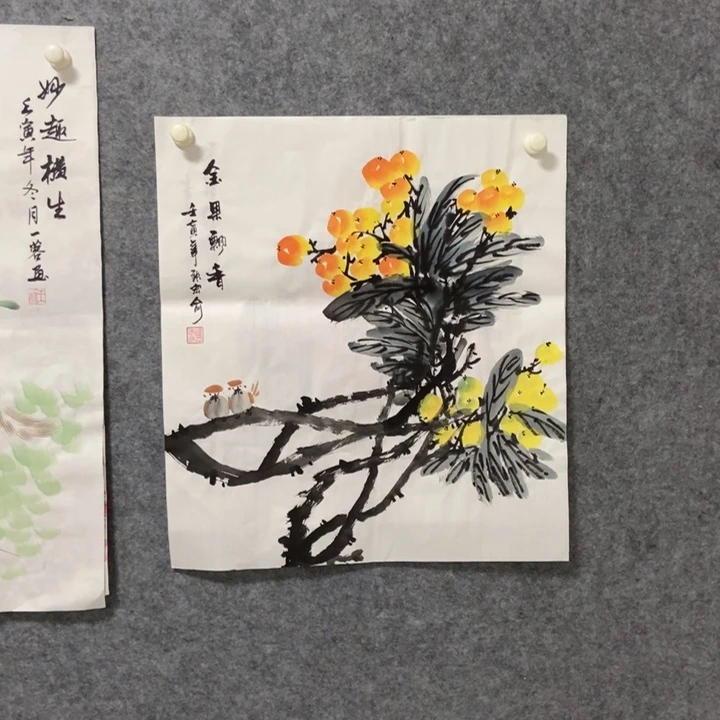 金果飘香
壬寅年
妙趣横生
壬寅年冬月一